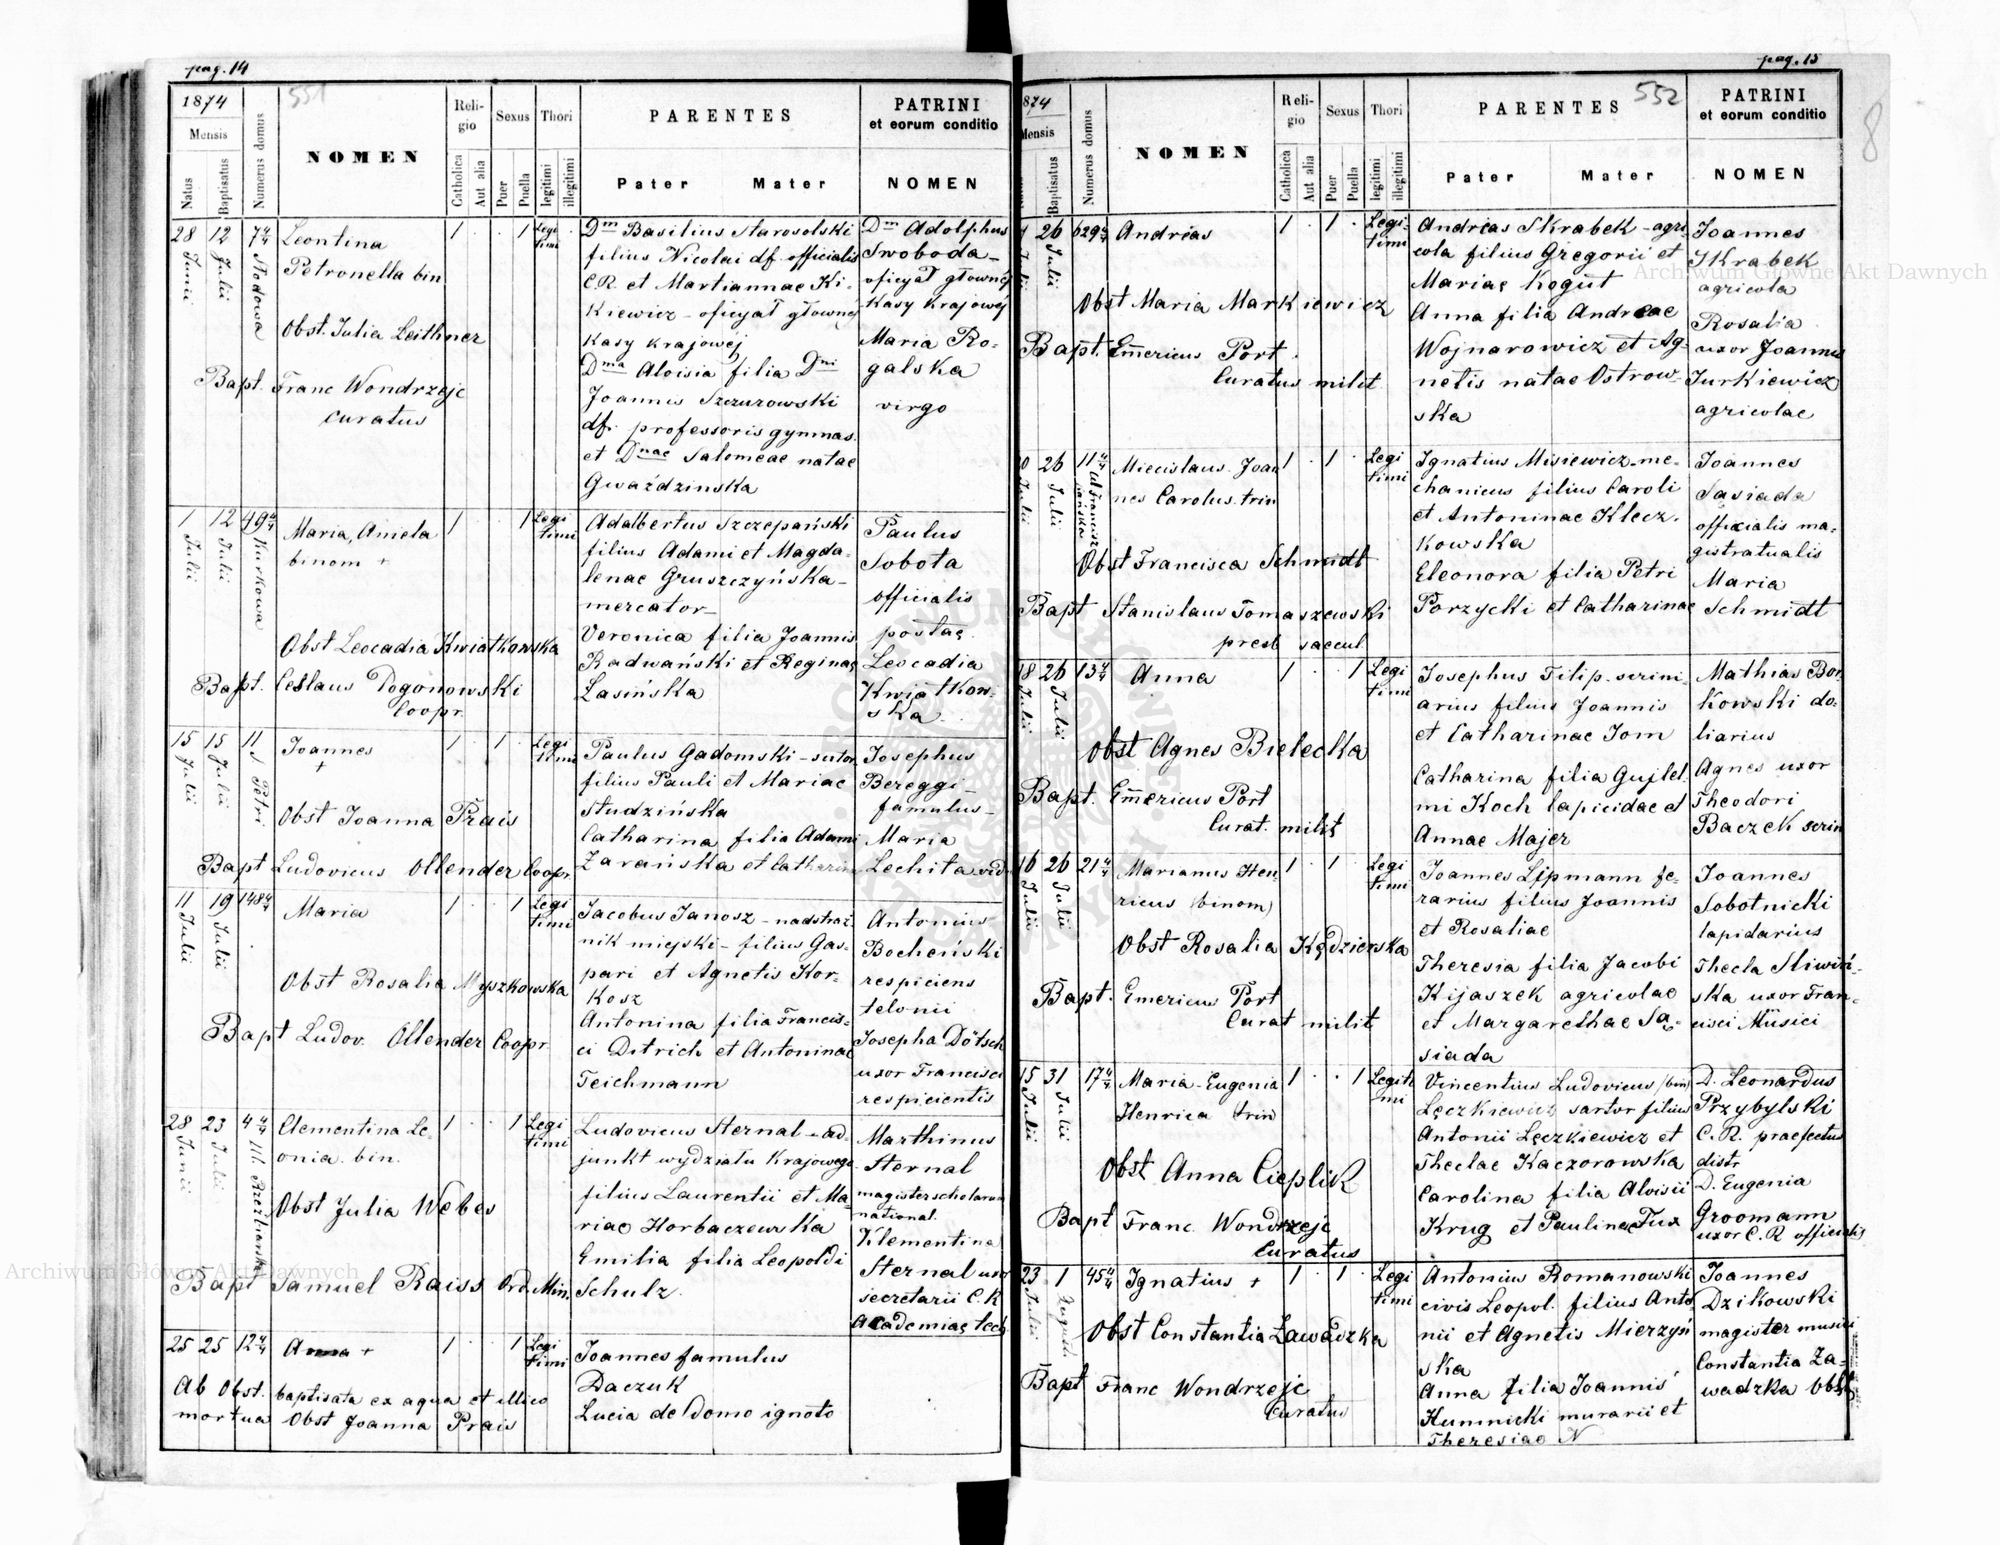 pag. 14
551
1874
Mensis
Natus
Baptisatus
Numerus domus
NOMEN
Reli-
gio
Catholica
Aut alia
Sexus
Puer
Puella
Thori
legitimi
illegitimi
PARENTES
Pater Mater
PATRINI
et eorum conditio
NOMEN
28 Junii
12 Julii
7 4/4
Leontina
Petronella bin
Obst. Julia Leithner
Bapt. Franc Wondrzejc
curatus
1 . . 1
Legi
timi
Dm Basilius Starosolski
filius Nicolai df. officialis
C.R. et Martiannae Ki-
kiewicz – oficyał głownej
Kasy Krajowej
Dma Aloisia filia Dni
Joannis Szczurowski
df. professoris gymnas.
et Dnae Salomeae natae
Gwaździnska
Dm Adolphus
Swoboda –
oficyał głownej
Kasy Krajowej
Maria Ro-
galska
virgo
1 Julii
12 Julii
49 4/4 Kurkowa
Maria, Aniela
binom +
Obst Leocadia Kwiatkowska
Bapt. Ceslaus Dogonowski
Coopr.
1 . . 1
Legi
timi
Adalbertus Szczepański
filius Adami et Magda-
lenae Gruszczyńska –
mercator –
Veronica filia Joannis
Radwański et Reginae
Lasińska
Paulus
Sobota
officialis
postae
Leocadia
Kwiatkow-
ska
15 Julii
15 Julii
11 S Petri
Joannes
+
Obst Joanna Prais
Bapt Ludovicus Ollender Coopr.
1 . 1 .
Legi
timi
Paulus Gadomski – sutor
filius Pauli et Mariae
Studzińska
Catharina filia Adami
Zarańska et Catharin
Josephus
Bereggi –
famulus –
Maria
Lechita vid
11 Julii
19 Julii
148 4/4
Maria
Obst Rosalia Myszkowska
Bapt Ludov. Ollender Coopr.
1 . . 1
Legi
timi
Jacobus Janosz – nadstraż
nik miejski – filius Gas-
pari et Agnetis Kor-
Kosz
Antonina filia Francis-
ci Ditrich et Antoninae
Teichmann
Antonius
Bocheński
respiciens
telonii
Josepha Dötsch
uxor Francisci
respicientis
28 Junii
23 Julii
4 4/4
Clementina Le-
onia. bin.
Obst Julia Weber
Bapt Samuel Raiss Ord. Min.
1 . . 1
Legi
timi
Ludovicus Sternal – ad-
junkt wydziału Krajowego
filius Laurentii et Ma-
riae Horbaczewska
Emilia filia Leopoldi
Schulz.
Marthinus
Sternal
magister scholarum
national.
Klementina
Sternal uxo
secretarii C.R
Academiae tech
25 25 12 4/4
Anna +
Ab Obst. baptisata ex aqua et illico
mortua Obst Joanna Prais
1 . . 1
Legi
timi
Joannes famulus
Daczuk
Lucia de domo ignoto
pag. 15
552
8
874
Mensis
Baptisatus
Numerus domus
NOMEN
Reli-
gio
Catholica
Aut alia
Sexus
Puer
Puella
Thori
legitimi
illegitimi
PARENTES
Pater Mater
PATRINI
et eorum conditio
NOMEN
26 Julii
629 4/4
Andreas
Obst Maria Markiewicz
Bapt. Emericus Port
Curatus milit
1 . 1 .
Legi-
timi
Andreas Skrabek – agri
cola filius Gregorii et
Mariae Kogut
Anna filia Andreae
Wojnarowicz et Ag-
netis natae Ostrow-
ska
Joannes
Skrabek
agricola
Rosalia
uxor Joannis
Jurkiewicz
agricolae
26 Julii
11 4/4
Miecislaus. Joan
nes Carolus. trin
Obst Francisca Schmidt
Bapt Stanislaus Tomaszewski
presb saecul
1 . 1 .
Legi
timi
Ignatius Misiewicz – me-
chanicus filius Caroli
et Antoninae Klecz-
kowska
Eleonora filia Petri
Porzycki et Catharinae
Joannes
Sasiada
officialis ma-
gistratualis
Maria
Schmidt
18 Julii
26 Julii
13 4/4
Anna
Obst Agnes Bielecka
Bapt. Emericus Port
Curat. milit
1 . . 1
Legi
timi
Josephus Filip. scrini-
arius filius Joannis
et Catharinae Tom
Catharina filia Gujlel
mi Koch lapicidae et
Annae Majer
Mathias Bor-
Kowski do-
liarius
Agnes uxor
Theodori
Baczek scrin
16 Julii
26 Julii
21 4/4
Marianus Hen-
ricus (binom)
Obst Rosalia Kędzierska
Bapt. Emericus Port
Curat milit
1 . 1 .
Legi
timi
Joannes Lipmann fe-
rarius filius Joannis
et Rosaliae
Theresia filia Jacobi
Kijaszek agricolae
et Margarethae Sa-
siada
Joannes
Sobotnicki
lapidarius
Thecla Sliwiń-
ska uxor Fran-
cisci Müsici
15 Julii
31 Julii
17 4/4
Maria – Eugenia
Henrica trin
Obst Anna Cieplik
Bapt Franc Wondrzejc
Curatus
1 . . 1
Legiti
mi
Vincentius Ludovicus (bin)
Lęczkiewicz sartor filius
Antonii Lęczkiewicz et
Theclae Kaczorowska
Carolina filia Aloisii
Krug et Paulinae Fux
D. Leonardus
Przybylski
C.R. praefectus
distr
D. Eugenia
Groomann
uxor C.R officialis
23 Julii
1 Augusti
45 4/4
Ignatius +
Obst Constantia Zawadzka
Bapt Franc Wondrzejc
Curatus
1 . 1
Legi
timi
Antonius Romanowski
civis Leopol. filius Anto
nii et Agnetis Mierzyń
ska
Anna filia Joannis
Kumnicki murarii et
Theresiae N
Joannes
Dzikowski
magister musici
Constantia Za-
wadzka Obst
Archiwum Główne Akt Dawnych
Archiwum Główne Akt Dawnych